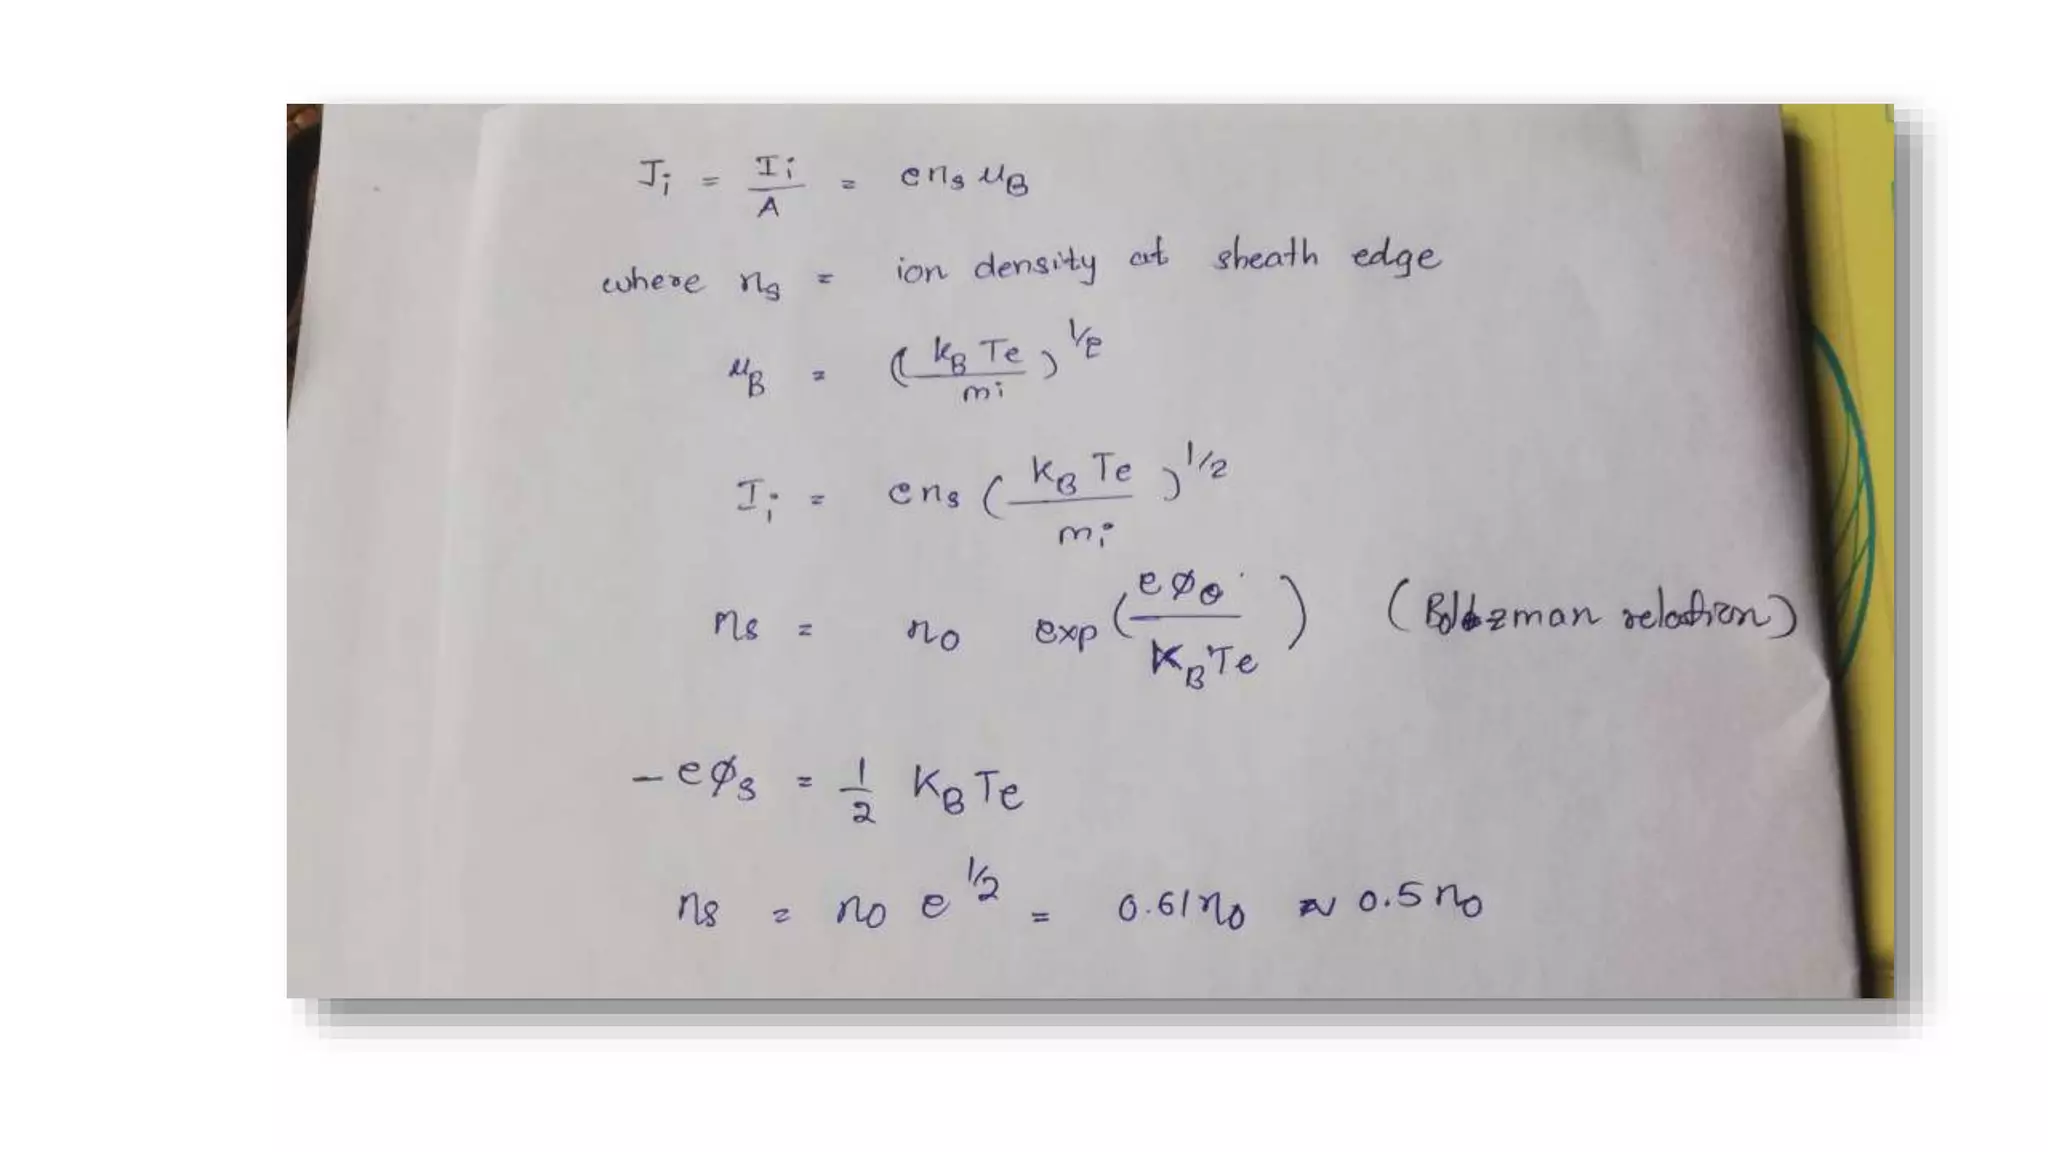 Ji = Ii/A = ens uB
where ns = ion density at sheath edge
uB = (kB Te / mi)^1/2
Ii = ens (KB Te / mi)^1/2
ns = no exp (eφo / KB Te) (Boltzman relation)
- eφs = 1/2 KB Te
ns = no e^1/2 = 0.61no ≈ 0.5 no